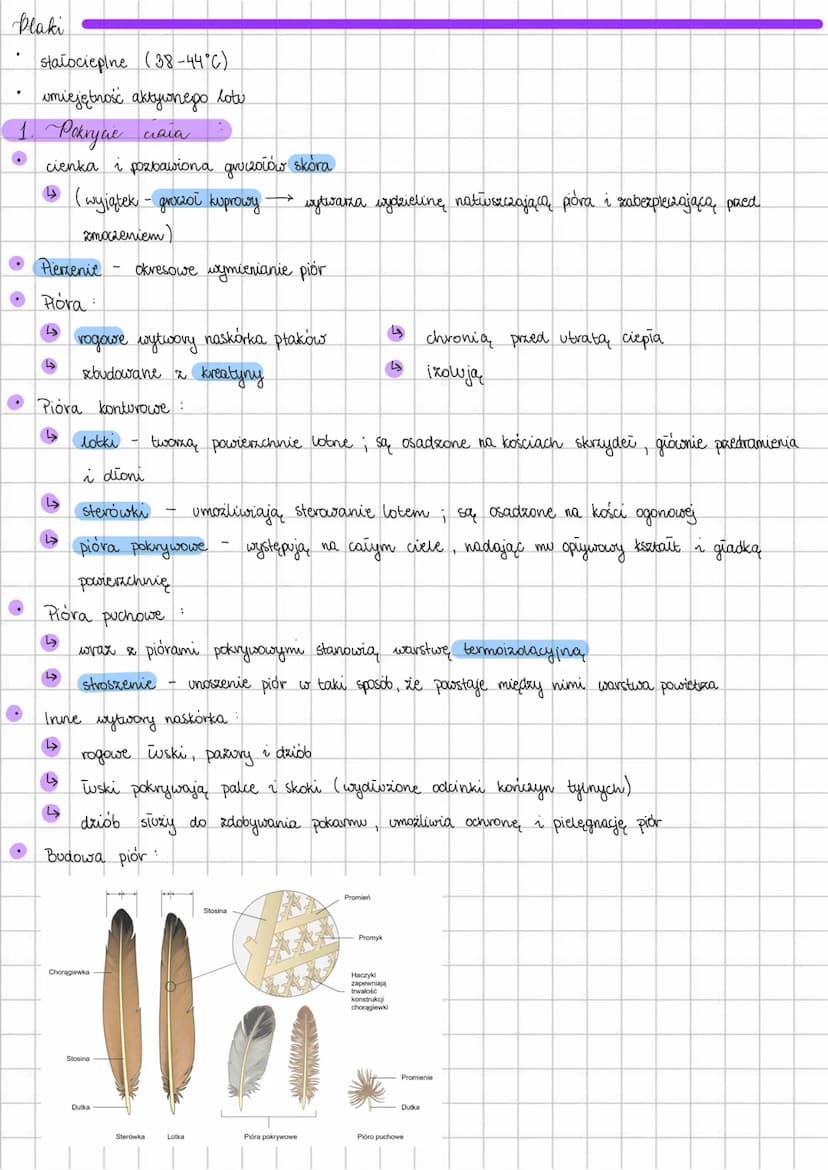 Ptaki
• stałocieplne (38-44°C)
• umiejętność aktywnego lotu
1. Pokrycie ciała :
• cienka i pozbawiona gruczołów skóra
↳ (wyjątek - gruczoł kuprowy → wytwarza wydzielinę natłuszczającą pióra i zabezpieczającą przed
zmoczeniem)
• Pierzenie - okresowe wymienianie piór
• Pióra :
↳ rogowe wytwory naskórka ptaków
↳ zbudowane z kreatyny
↳ chronią przed utratą ciepła
↳ izolują
• Pióra konturowe :
↳ lotki - tworzą powierzchnie lotne ; są osadzone na kościach skrzydeł , głównie przedramienia
i dłoni
↳ sterówki - umożliwiają sterowanie lotem ; są osadzone na kości ogonowej
↳ pióra pokrywowe - występują na całym ciele , nadając mu opływowy kształt i gładką
powierzchnię
• Pióra puchowe :
↳ wraz z piórami pokrywowymi stanowią warstwę termoizolacyjną
↳ stroszenie - unoszenie piór w taki sposób, że powstaje między nimi warstwa powietrza
• Inne wytwory naskórka :
↳ rogowe łuski, pazury i dziób
↳ łuski pokrywają palce i skoki (wydłużone odcinki kończyn tylnych)
↳ dziób służy do zdobywania pokarmu , umożliwia ochronę i pielęgnację piór
• Budowa piór :
Chorągiewka
Stosina
Dutka
Sterówka
Lotka
Stosina
Promień
Promyk
Haczyki
zapewniają
trwałość
konstrukcji
chorągiewki
Pióra pokrywowe
Promienie
Dutka
Pióro puchowe